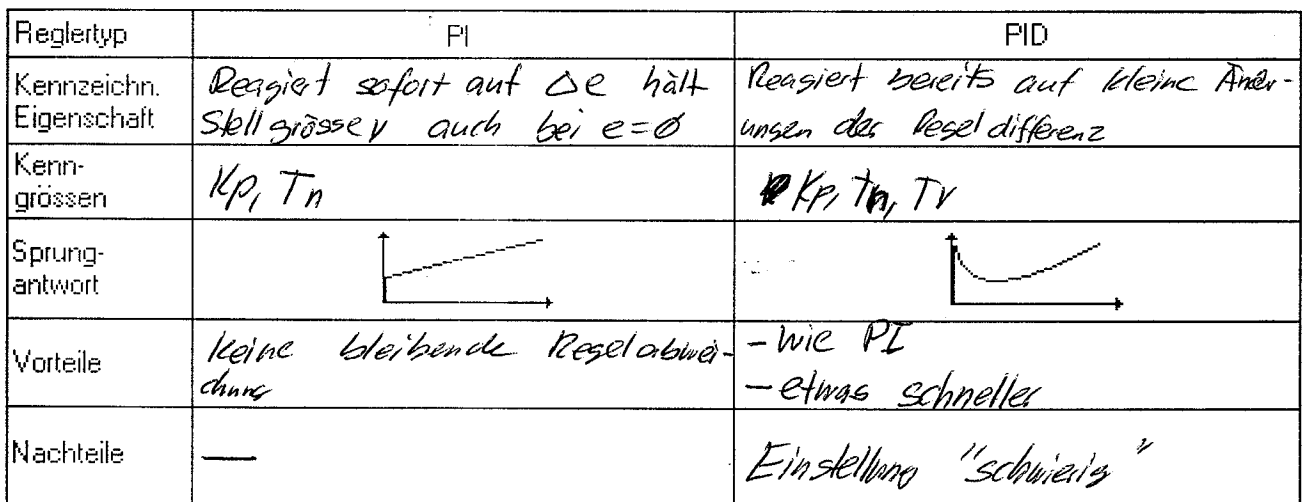 Reglertyp PI PID
Kennzeichn. Eigenschaft
Reagiert sofort auf Δe hält
Stellgrösse y auch bei e=0
Reagiert bereits auf kleine Änder-
ungen der Regeldifferenz
Kenn-
grössen
Kp, Tn
Kp, tn, Tv
Sprung-
antwort
Vorteile
Keine bleibende Regelabwei-
chung
- wie PI
- etwas schneller
Nachteile
—
Einstellung "schwierig"